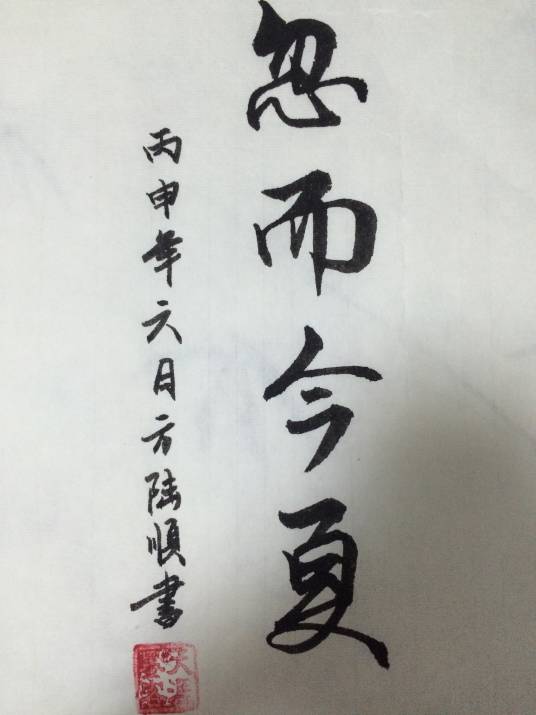 忽而今夏
丙申年六月方陆順書